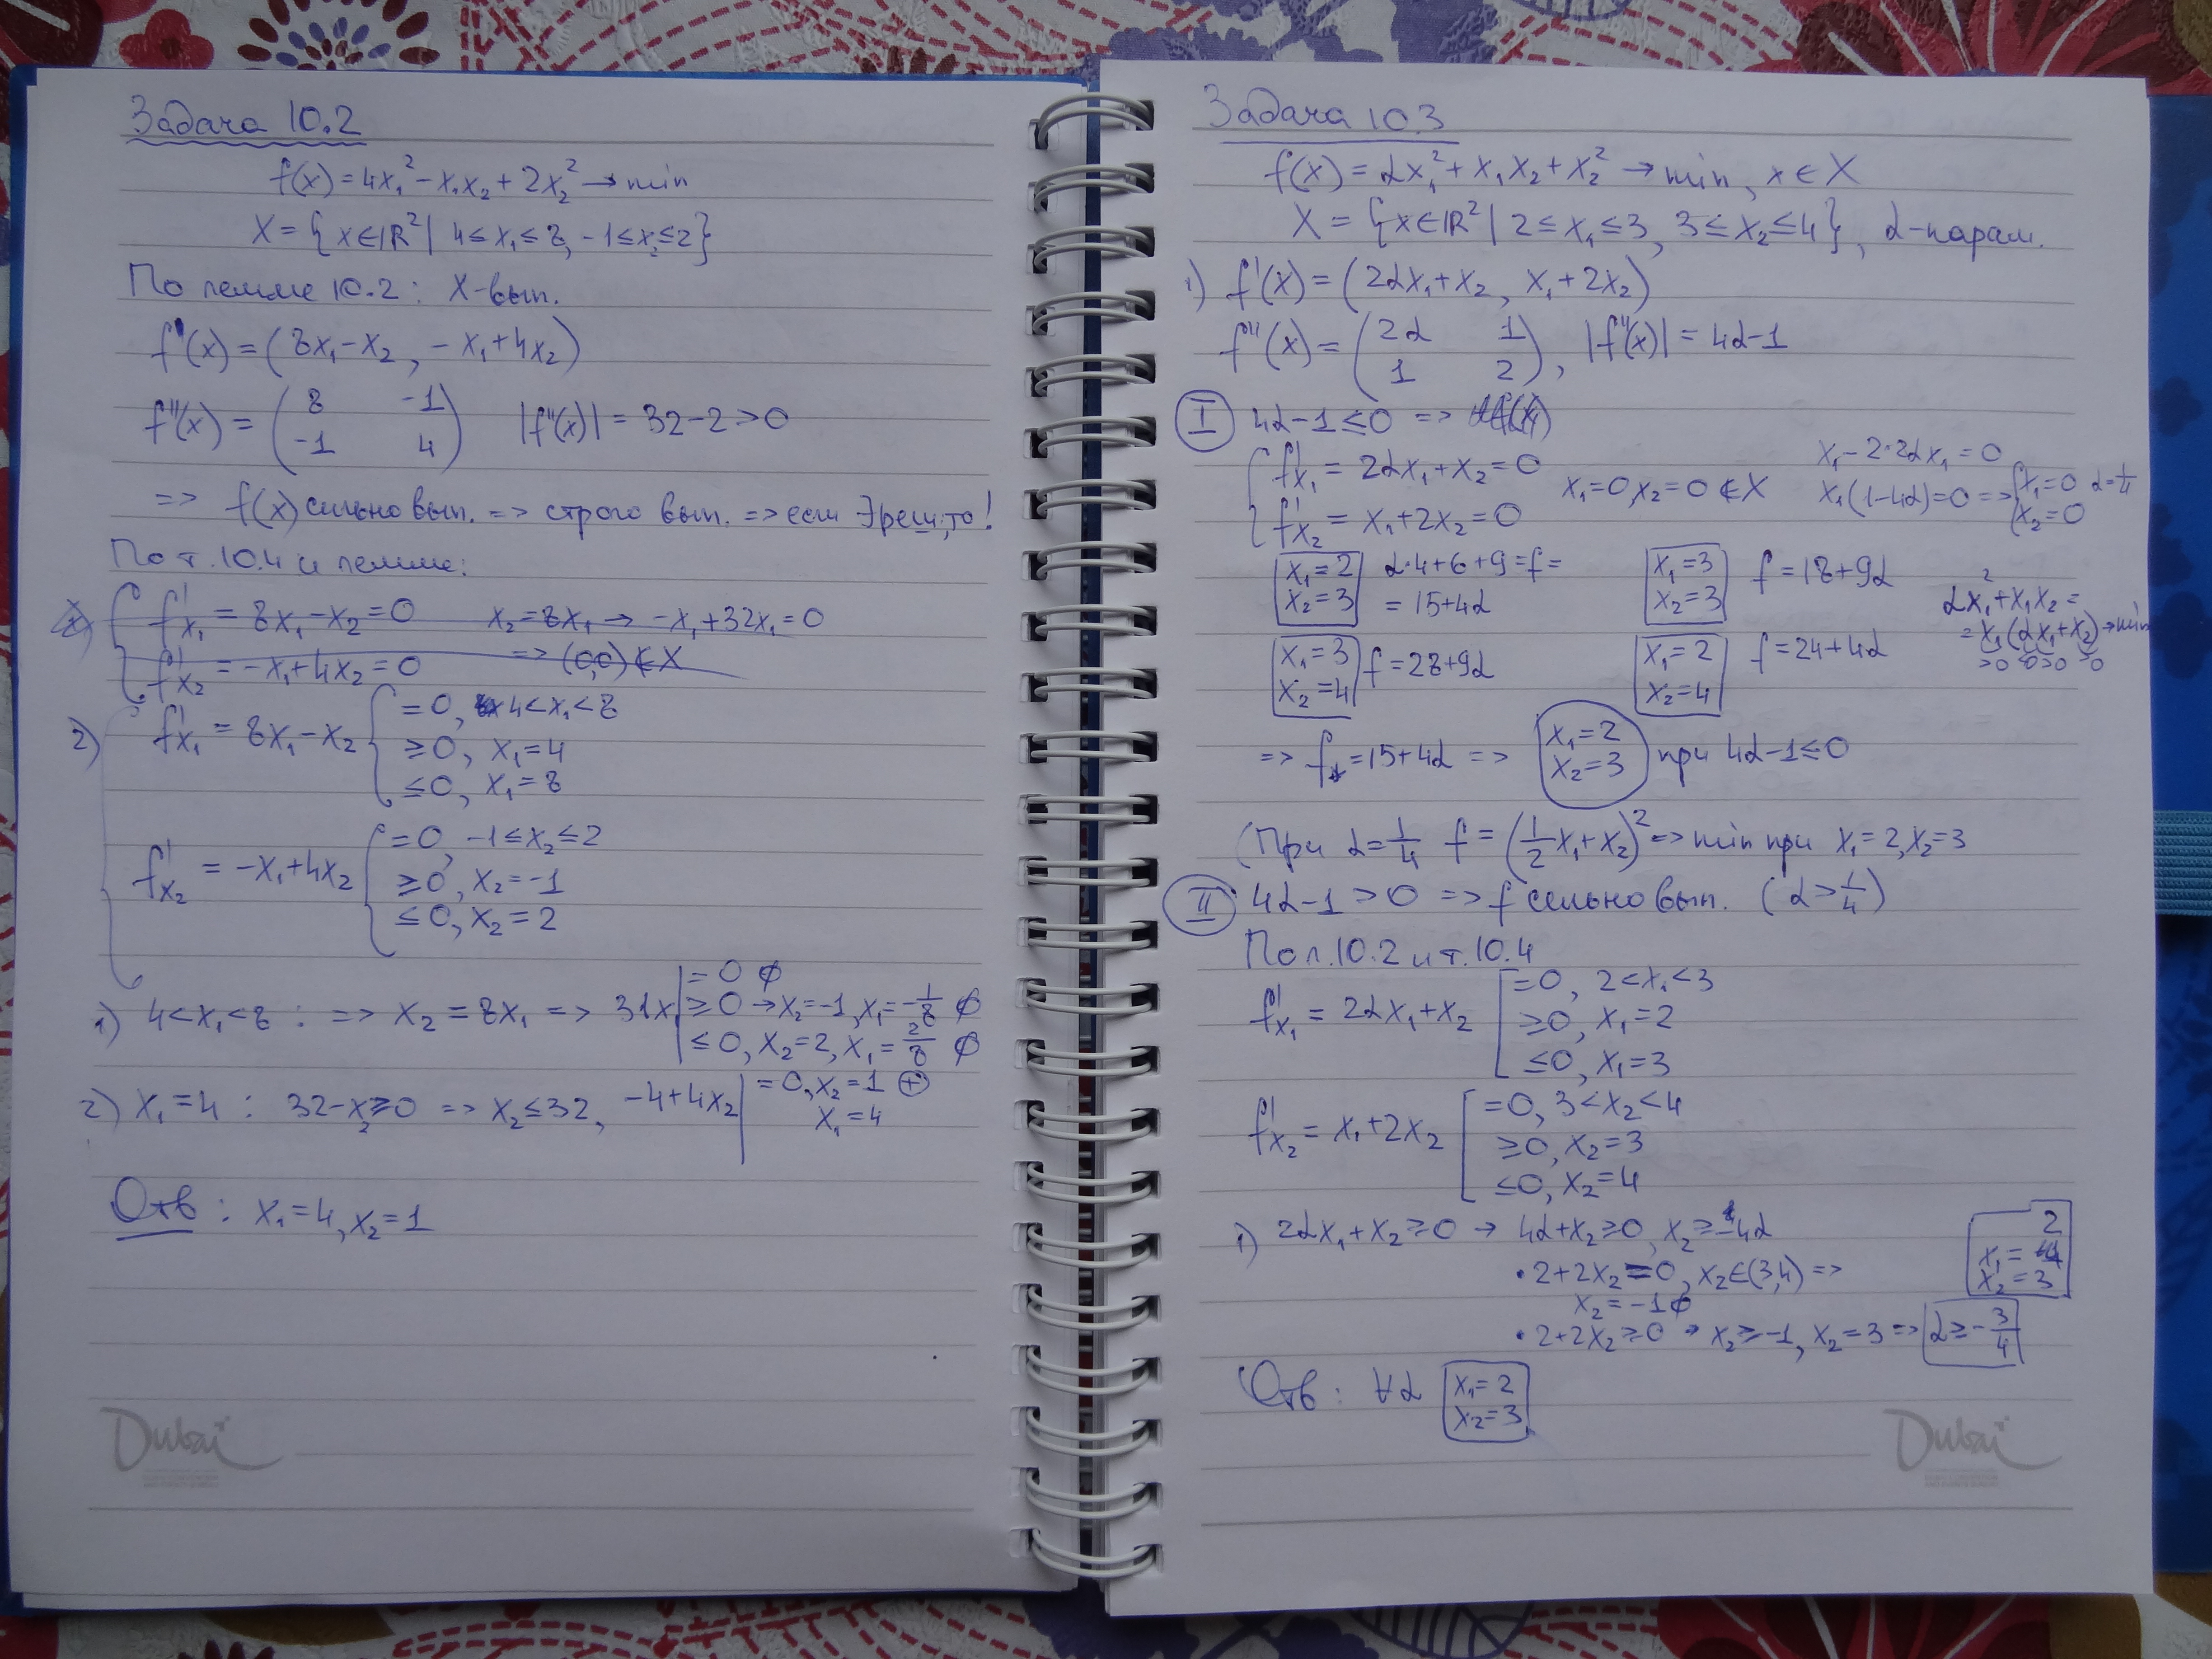 Задача 10.2
f(x) = 4x₁² - x₁x₂ + 2x₂² → min
X = {x ∈ ℝ² | 4 ≤ x₁ ≤ 8, -1 ≤ x₂ ≤ 2}
По лемме 10.2: X-вып.
f'(x) = (8x₁ - x₂, -x₁ + 4x₂)
f''(x) = (8 -1
-1 4) |f''(x)| = 32 - 2 > 0
=> f(x) сильно вып. => строго вып. => если ∃ реш, то !
По т. 10.4 и лемме:
f'x₁ = 8x₁ - x₂ = 0 x₂ = 8x₁ → -x₁ + 32x₁ = 0
f'x₂ = -x₁ + 4x₂ = 0 => (0,0) ∉ X
2) f'x₁ = 8x₁ - x₂ { = 0, 4 < x₁ < 8
≥ 0, x₁ = 4
≤ 0, x₁ = 8
f'x₂ = -x₁ + 4x₂ { = 0, -1 ≤ x₂ ≤ 2
≥ 0, x₂ = -1
≤ 0, x₂ = 2
1) 4 < x₁ < 8 : => x₂ = 8x₁ => 31x₁ | = 0 ∅
≥ 0 → x₂ = -1, x₁ = -1/8 ∅
≤ 0, x₂ = 2, x₁ = 2/8 ∅
2) x₁ = 4 : 32 - x₂ ≥ 0 => x₂ ≤ 32, -4 + 4x₂ | = 0, x₂ = 1 ⊕
x₁ = 4
Отв : x₁ = 4, x₂ = 1
Dubai
Задача 10.3
f(x) = αx₁² + x₁x₂ + x₂² → min, x ∈ X
X = {x ∈ ℝ² | 2 ≤ x₁ ≤ 3, 3 ≤ x₂ ≤ 4}, α-парам.
1) f'(x) = (2αx₁ + x₂, x₁ + 2x₂)
f''(x) = (2α 1
1 2), |f''(x)| = 4α - 1
I 4α - 1 ≤ 0 =>
f'x₁ = 2αx₁ + x₂ = 0
f'x₂ = x₁ + 2x₂ = 0
x₁ = 0, x₂ = 0 ∉ X
x₁ - 2·2αx₁ = 0
x₁(1 - 4α) = 0 => { x₁ = 0 α = 1/4
x₂ = 0
x₁ = 2
x₂ = 3
α·4 + 6 + 9 = f =
= 15 + 4α
x₁ = 3
x₂ = 3
f = 18 + 9α
αx₁² + x₁x₂ =
= x₁(αx₁ + x₂) → min
x₁ = 3
x₂ = 4
f = 28 + 9α
x₁ = 2
x₂ = 4
f = 24 + 4α
=> f* = 15 + 4α => x₁ = 2
x₂ = 3 при 4α - 1 ≤ 0
(При α = 1/4 f = (1/2 x₁ + x₂)² => min при x₁ = 2, x₂ = 3
II 4α - 1 > 0 => f сильно вып. (α > 1/4)
По л. 10.2 и т. 10.4
f'x₁ = 2αx₁ + x₂ [ = 0, 2 < x₁ < 3
≥ 0, x₁ = 2
≤ 0, x₁ = 3
f'x₂ = x₁ + 2x₂ [ = 0, 3 < x₂ < 4
≥ 0, x₂ = 3
≤ 0, x₂ = 4
1) 2αx₁ + x₂ ≥ 0 → 4α + x₂ ≥ 0, x₂ ≥ -4α
• 2 + 2x₂ = 0, x₂ ∈ (3,4) =>
x₂ = -1 ∅
x₁ = 2
x₂ = 3
• 2 + 2x₂ ≥ 0 → x₂ ≥ -1, x₂ = 3 => α ≥ -3/4
Отв : ∀α x₁ = 2
x₂ = 3
Dubai